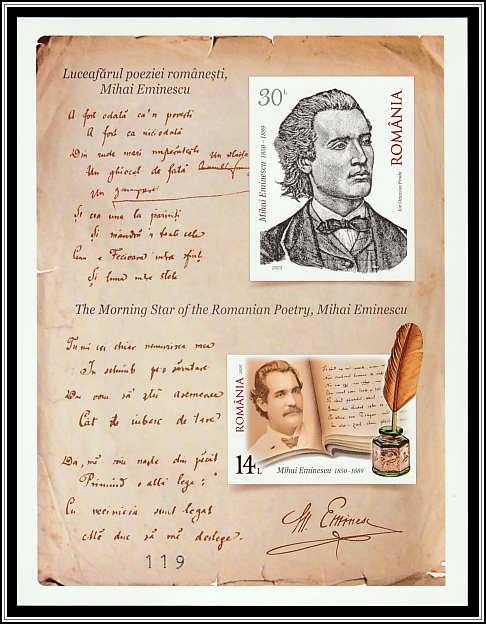 Luceafărul poeziei românești,
Mihai Eminescu
A fost odată ca'n povești
A fost ca niciodată
Din rude mari împărătești
Un ghiocel de fată
Un
Și era una la părinți
Și mândră 'n toate cele
Cum e Fecioara între sfinți
Și luna între stele
30L
ROMÂNIA
Mihai Eminescu 1850-1889
Jon Octavian Penda
2025
The Morning Star of the Romanian Poetry, Mihai Eminescu
Tu-mi cei chiar nemurirea mea
În schimb pe-o sărutare
Dar voiu să știi asemenea
Cât te iubesc de tare
Da, mă voiu naște din păcat
Primind o altă lege:
Cu vecinicia sunt legat
Ci duc să mă deslege.
119
ROMÂNIA
2025
14L
Mihai Eminescu 1850-1889
M. Eminescu